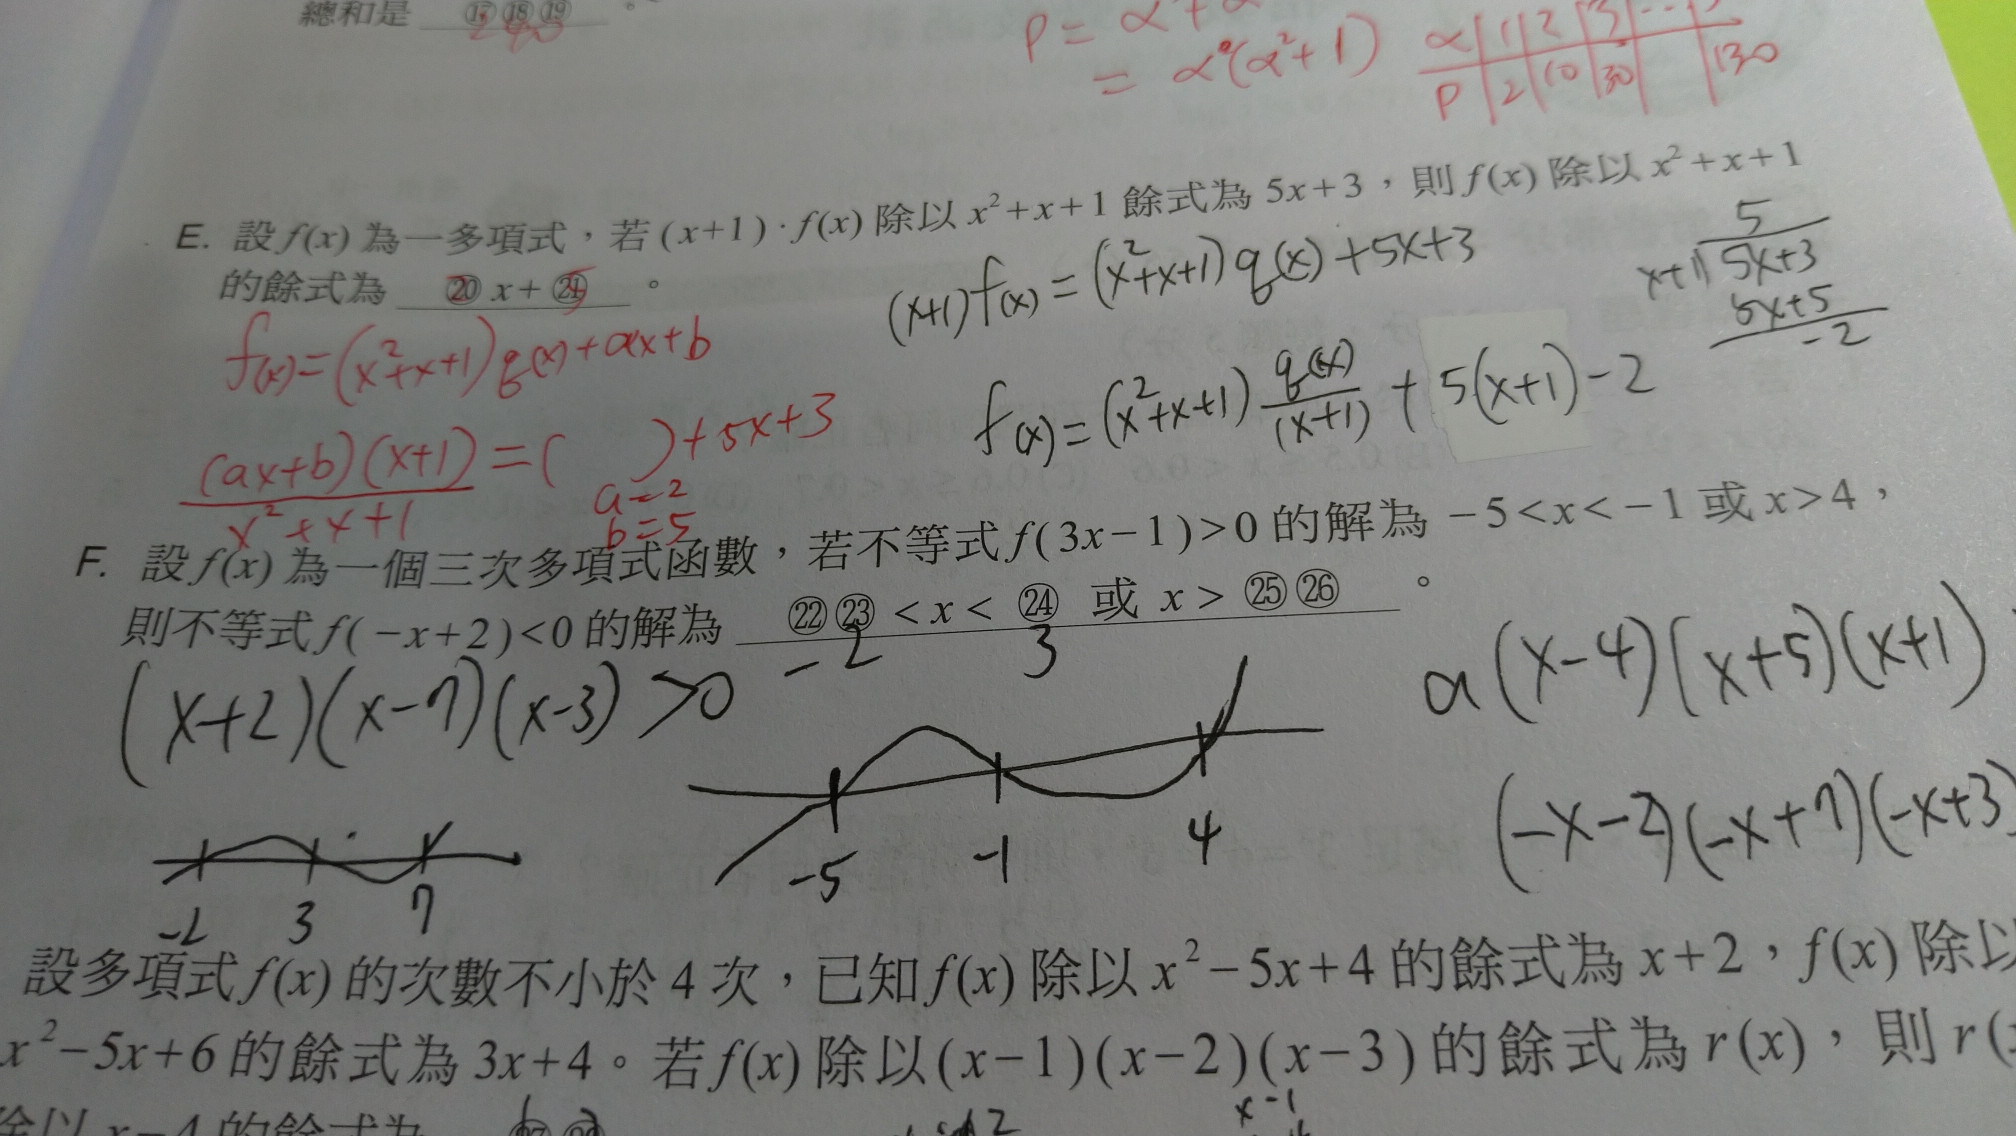 總和是 ⑰⑱⑲ 。
P = α + α
= α²(α²+1)
α 1 2 3 ...
P 2 10 30 130
E. 設 f(x) 為一多項式，若 (x+1)·f(x) 除以 x²+x+1 餘式為 5x+3，則 f(x) 除以 x²+x+1
的餘式為 ⑳ x+㉑ 。
(x+1)f(x) = (x²+x+1)q(x)+5x+3
5
x+1 5x+3
5x+5
-2
f(x)=(x²+x+1)q(x)+ax+b
f(x)=(x²+x+1) q(x)/(x+1) + 5(x+1)-2
(ax+b)(x+1) = ( )+5x+3
x²+x+1
a=2
b=5
F. 設 f(x) 為一個三次多項式函數，若不等式 f(3x-1)>0 的解為 -5<x<-1 或 x>4，
則不等式 f(-x+2)<0 的解為 ㉒㉓ <x< ㉔ 或 x> ㉕㉖ 。
-2 3
(x+2)(x-7)(x-3)>0
a(x-4)(x+5)(x+1)
-5 -1 4
(-x-2)(-x+7)(-x+3)
-2 3 7
設多項式 f(x) 的次數不小於 4 次，已知 f(x) 除以 x²-5x+4 的餘式為 x+2，f(x) 除以
x²-5x+6 的餘式為 3x+4。若 f(x) 除以 (x-1)(x-2)(x-3) 的餘式為 r(x)，則 r(
除以 x-4 的餘式為
x-1